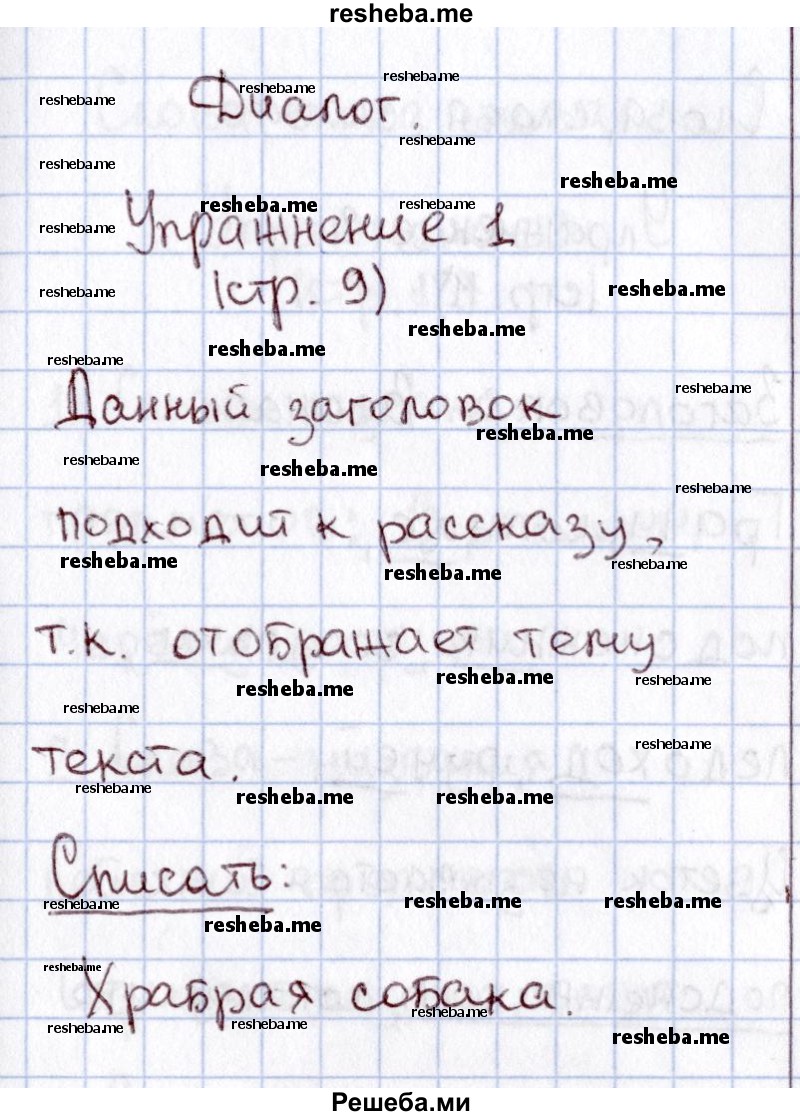 resheba.me
Диалог.
Упражнение 1
(стр. 9)
Данный заголовок
подходит к рассказу,
т.к. отображает тему
текста.
Списать:
Храбрая собака.
Решеба.ми